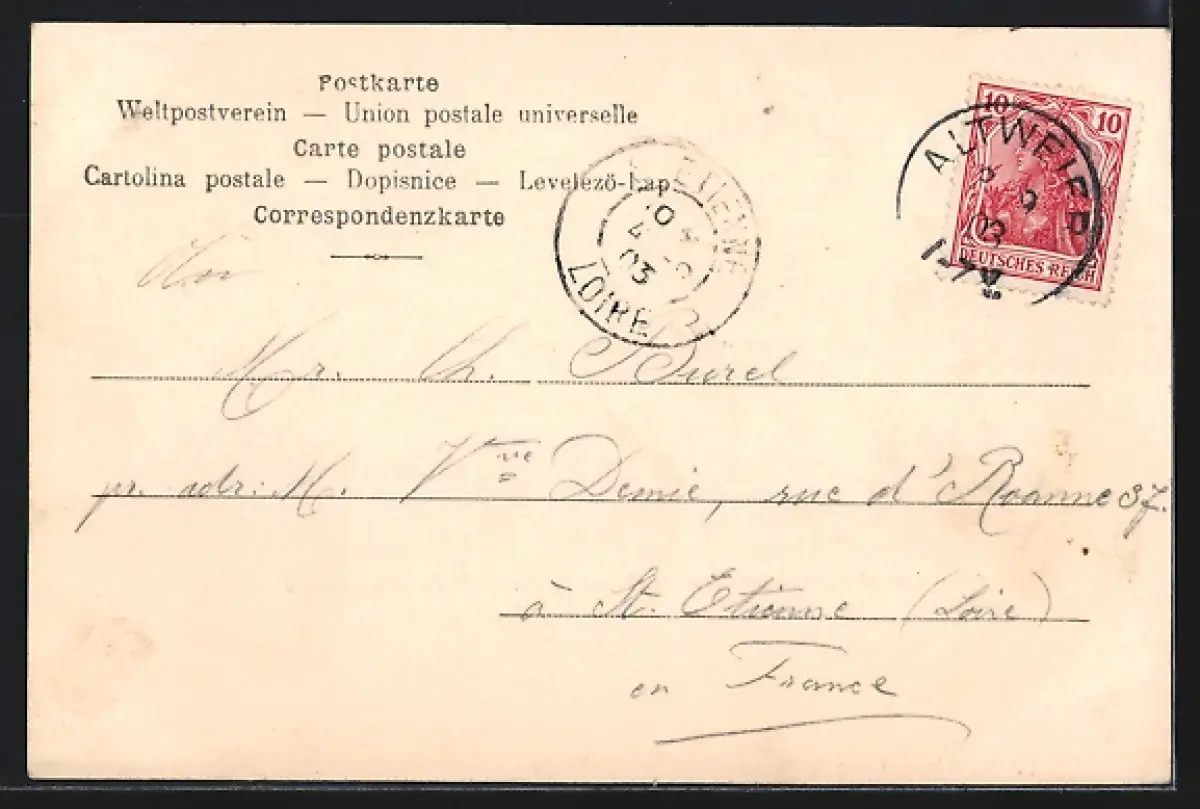 Postkarte
Weltpostverein — Union postale universelle
Carte postale
Cartolina postale — Dopisnice — Levelező-Lap
Correspondenzkarte
ETIENNE
LOIRE
03
10 10
DEUTSCHES REICH
ALTWEIER
9
03
Mr. Ch. Burel
pr. adr: M. Vve Demie, rue d'Roanne 37.
à St. Etienne (Loire)
en France